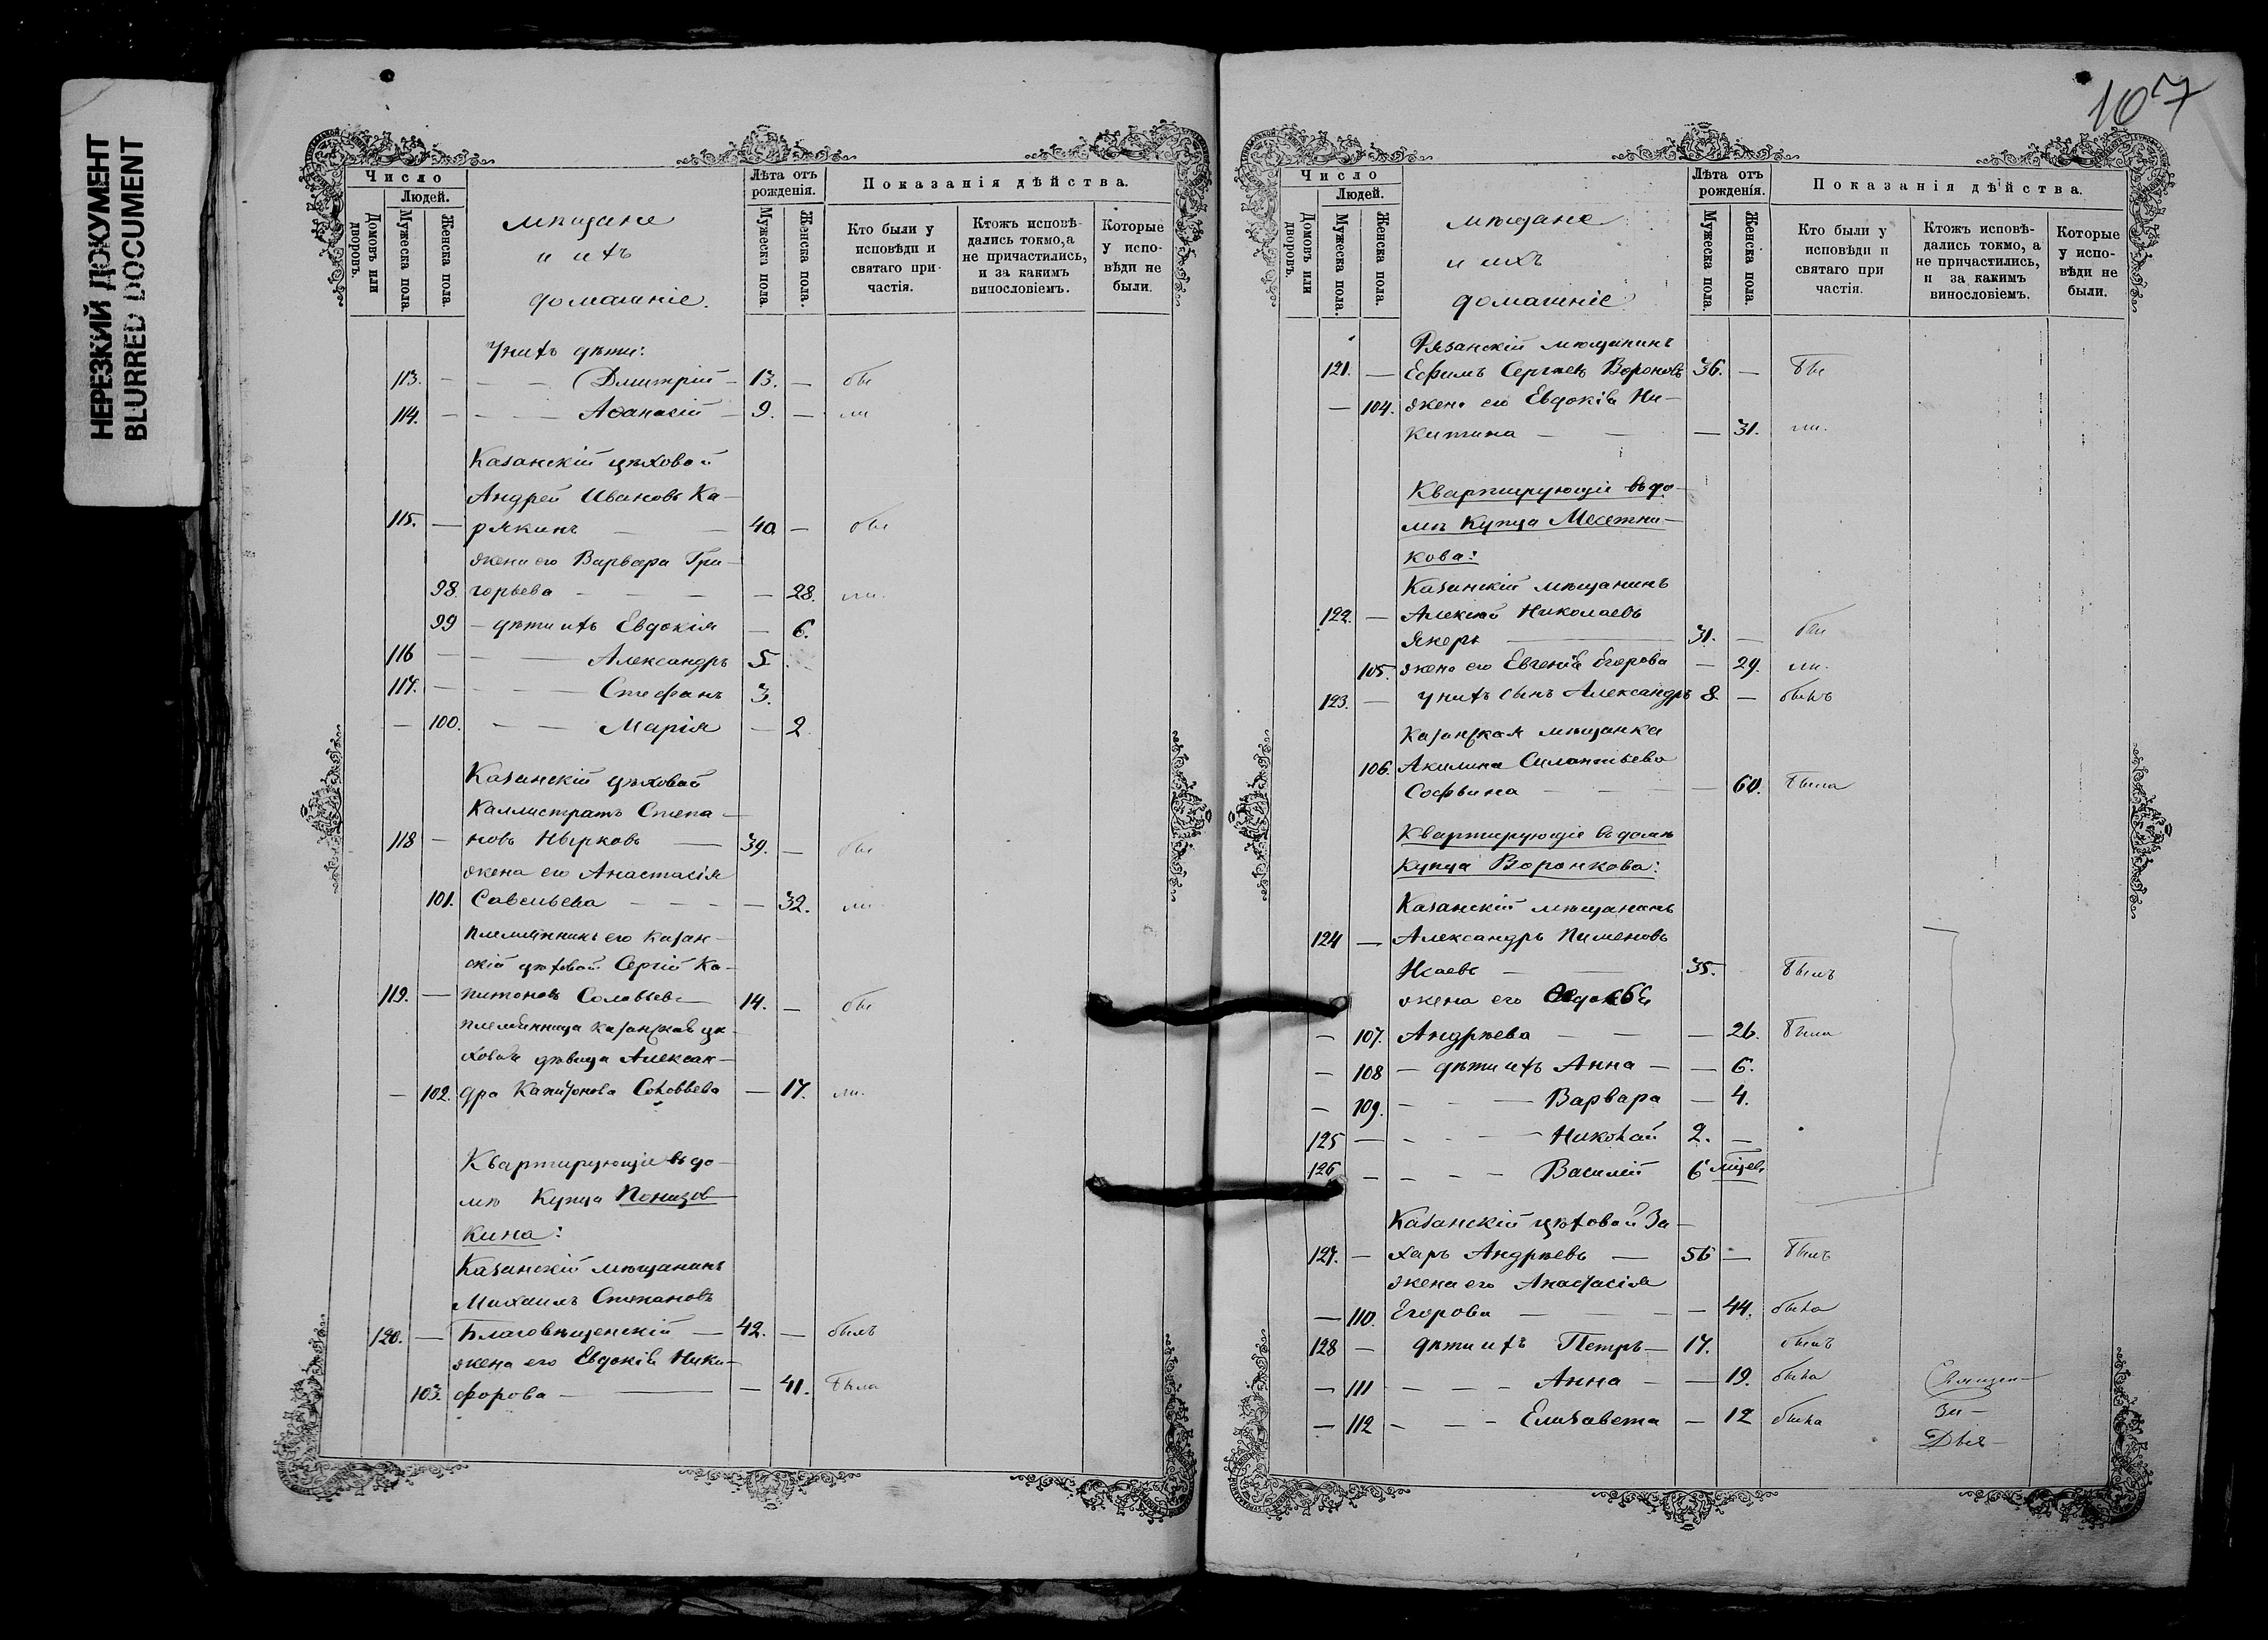 НЕРЕЗКИЙ ДОКУМЕНТ
BLURRED DOCUMENT
Число
Людей.
Домовъ или дворовъ.
Мужеска пола.
Женска пола.
мѣщане
и ихъ
домашніе.
Лѣта отъ рожденія.
Мужеска пола.
Женска пола.
Показанія дѣйства.
Кто были у исповѣди и святаго причастія.
Ктожъ исповѣдались токмо, а не причастились, и за какимъ винословіемъ.
Которые у исповѣди не были.
У нихъ дѣти:
113. — — — Дмитрій — 13. — бы
114. — — — Аѳанасій — 9. — ли
Казанскій цѣховой
Андрей Ивановъ Ка—
115. — рякинъ — — 40. — бы
жена его Варвара Гри—
98. горьева — — — — 28. ли.
99 — дѣти ихъ Евдокія — 6.
116 — — — Александръ 5.
117. — — — Стефанъ 3.
— 100. — — Марія — 2
Казанскій цѣховой
Каллистратъ Степа—
118 — новъ Нырковъ — 39. — бы
жена его Анастасія
101. Савельева — — — — 32. ли
племянникъ его Казан—
скій цѣховой Сергій Ка—
119. — питоновъ Соловьевъ — 14. — бы
племянница казанская цѣ—
ховая дѣвица Алексан—
— 102. дра Капитонова Соловьева — 17. ли.
Квартирующіе въ до—
мѣ Купца Понизов—
кина:
Казанскій мѣщанинъ
Михаилъ Степановъ
120. — Благовѣщенскій — 42. — былъ
жена его Евдокія Ники—
103. форова — — — 41. была
107
Число
Людей.
Домовъ или дворовъ.
Мужеска пола.
Женска пола.
мѣщане
и ихъ
домашніе
Лѣта отъ рожденія.
Мужеска пола.
Женска пола.
Показанія дѣйства.
Кто были у исповѣди и святаго причастія.
Ктожъ исповѣдались токмо, а не причастились, и за какимъ винословіемъ.
Которые у исповѣди не были.
Рязанскій мѣщанинъ
121. — Ефимъ Сергѣевъ Вороновъ 36. — бы
— 104. жена его Евдокія Ни—
китина — — — 31. ли.
Квартирующіе въ до—
мѣ Купца
кова:
Казанскій мѣщанинъ
122. — Алексѣй Николаевъ
Якорь — 31. — бы
105. жена его Евгенія Егорова — 29. ли.
123. — у нихъ сынъ Александръ 8 — былъ
Казанская мѣщанка
106. Акилина Силантьева
Софьина — — — 60. была
Квартирующіе въ домѣ
Купца Воронкова:
Казанскій мѣщанинъ
124 — Александръ Пименовъ
Исаевъ — — 35. былъ
жена его
— 107. Андрѣева — — — 26. была
— 108 — дѣти ихъ Анна — — 6.
— 109. — — — Варвара — 4.
125 — — — — Николай 2. —
126 — — — — Василій 6 мѣсяц.
Казанскій цѣховой За—
127. — харъ Андрѣевъ — 56 — былъ
жена его Анастасія
— 110. Егорова — — — — 44. была
128 — дѣти ихъ Петръ — 17. былъ
— 111 — — — Анна — — 19. была Священ—
— 112 — — — Елизавета — 12 была